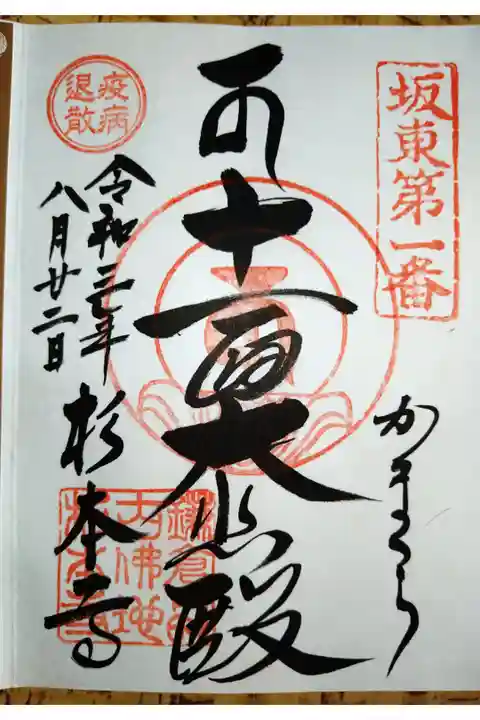 坂東第一番
かまくら
十一面大悲殿
疫病
退散
令和三年
八月廿二日
杉本寺
鎌倉
大佛地
杉本寺